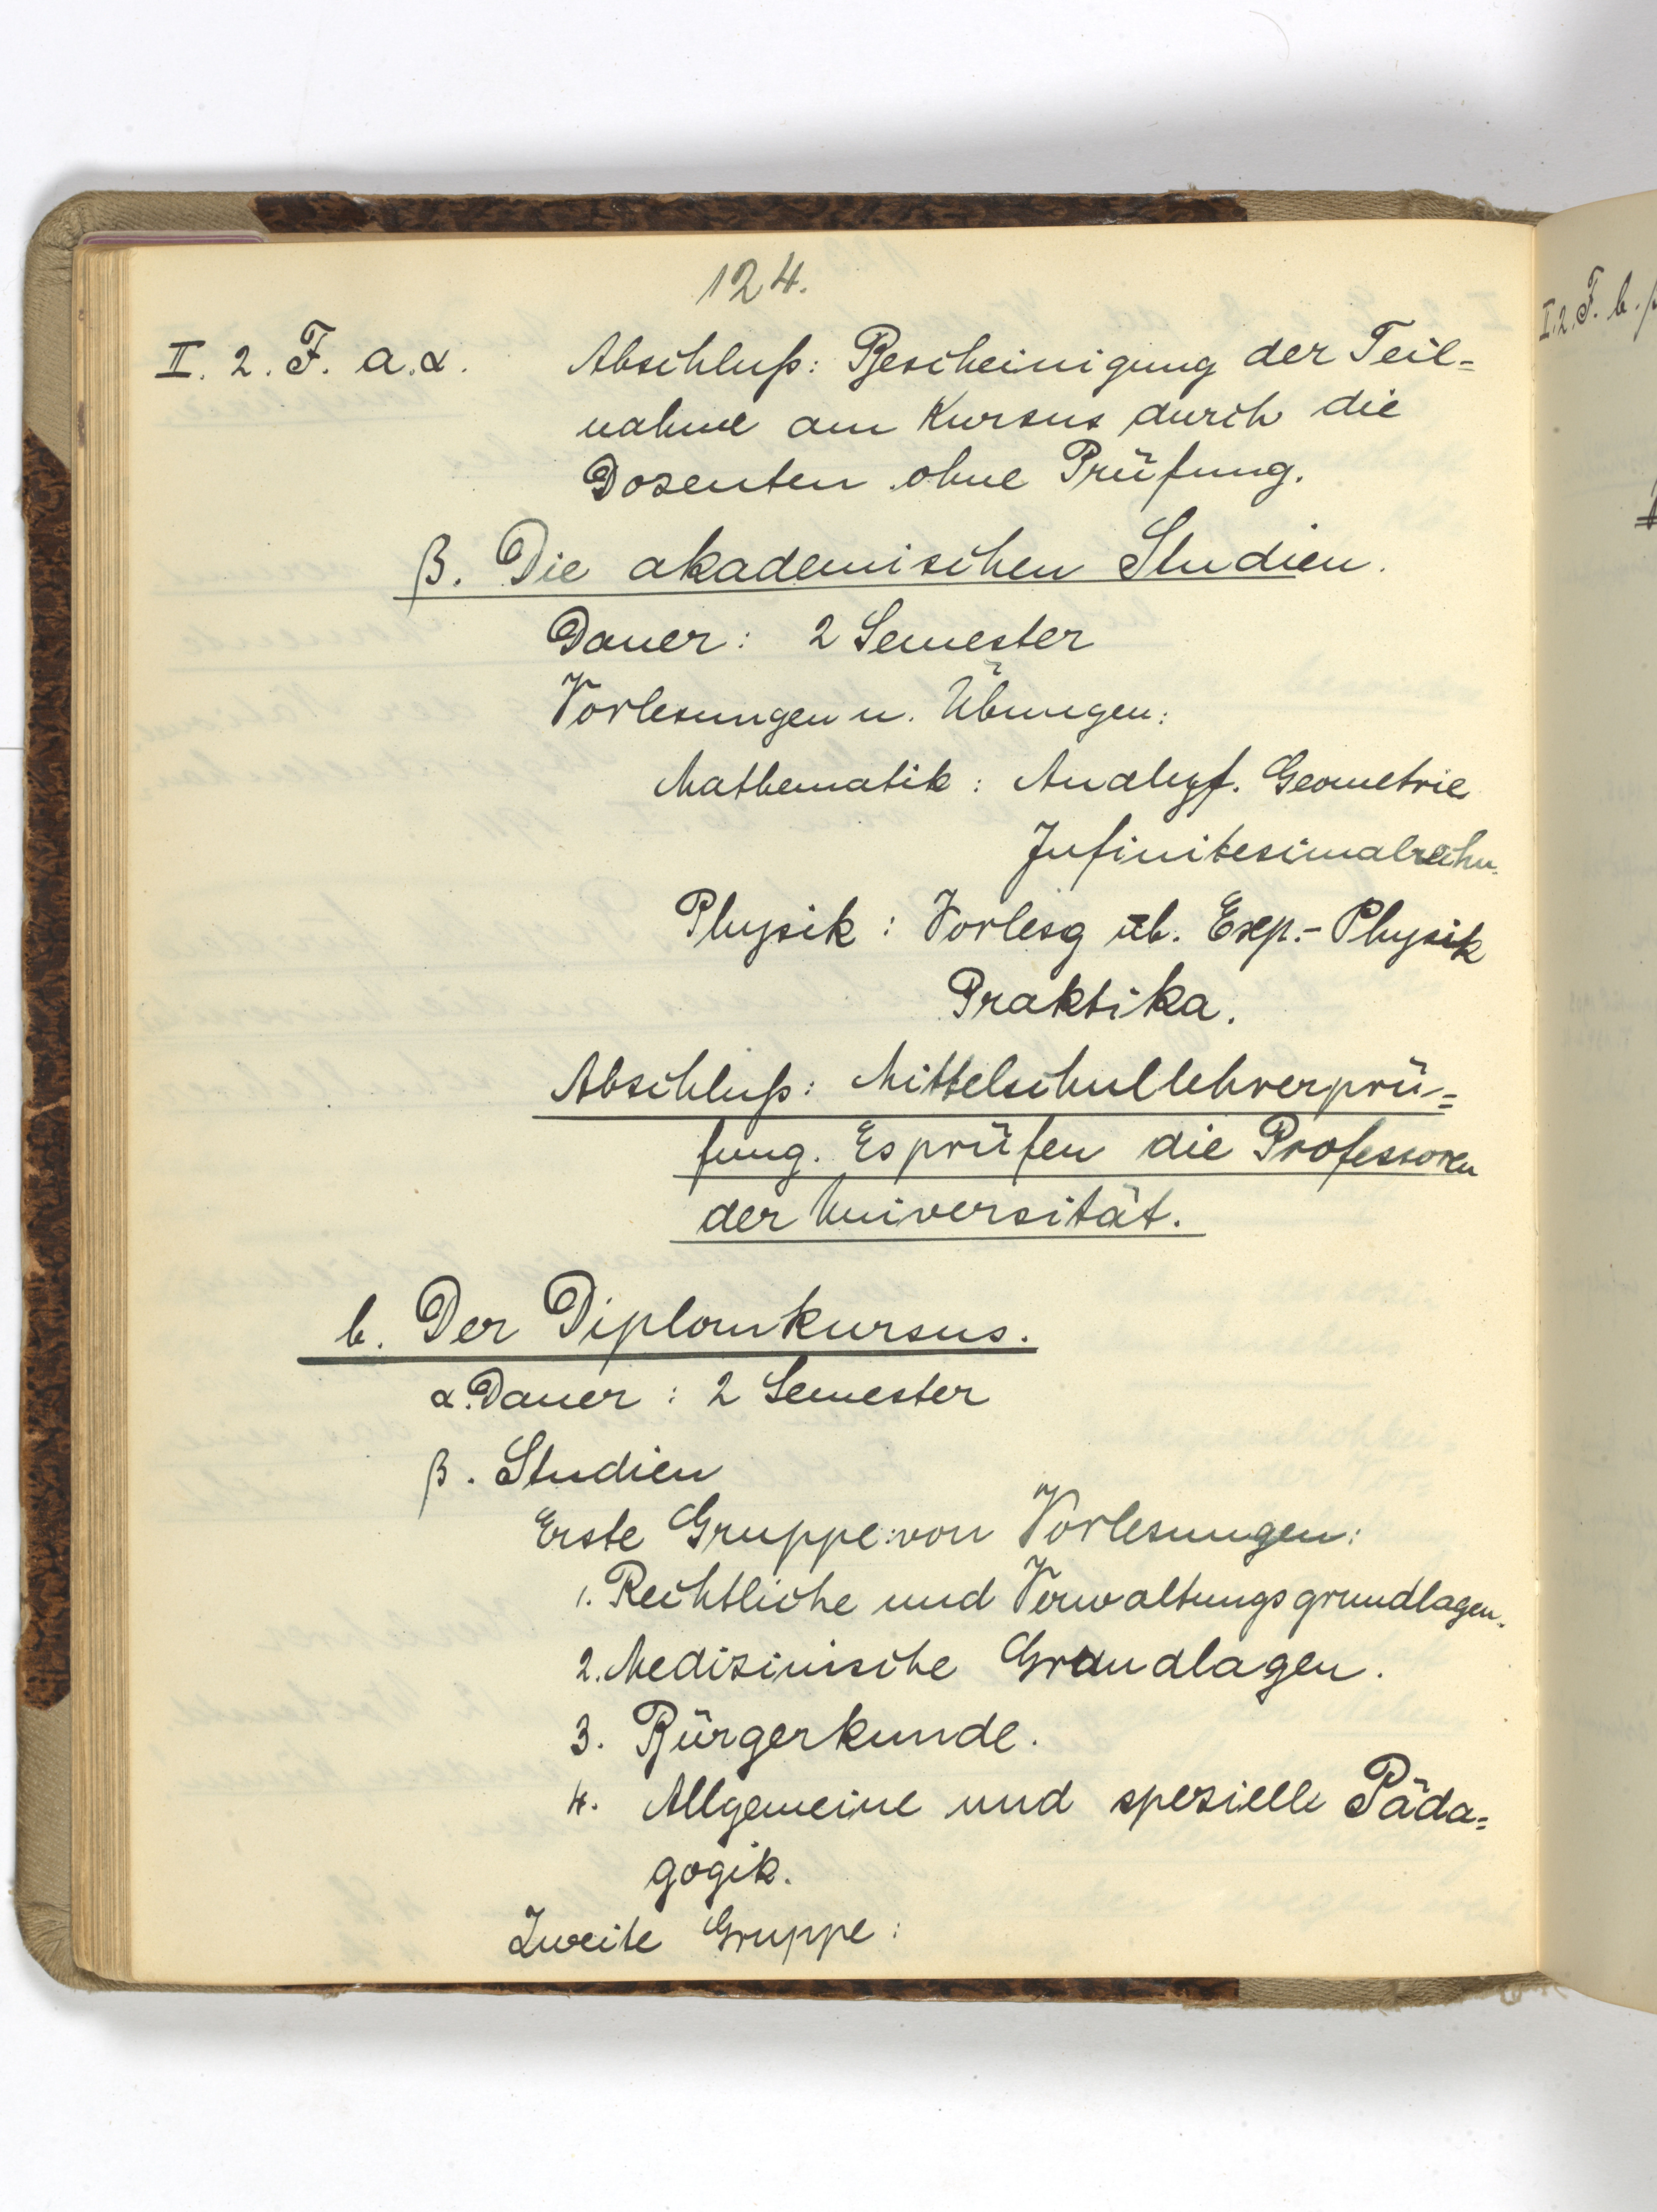 124.
II. 2. F. a. α. Abschluß: Bescheinigung der Teil=
nahme am Kursus durch die
Dozenten ohne Prüfung.
β. Die akademischen Studien.
Dauer: 2 Semester
Vorlesungen u. Übungen:
Mathematik: Analyt. Geometrie
Infinitesimalrechn.
Physik: Vorlesg üb. Exp.-Physik
Praktika.
Abschluß: Mittelschullehrerprü=
fung. Es prüfen die Professoren
der Universität.
b. Der Diplomkursus.
α. Dauer: 2 Semester
β. Studien
Erste Gruppe von Vorlesungen:
1. Rechtliche und Verwaltungsgrundlagen.
2. Medizinische Grundlagen.
3. Bürgerkunde.
4. Allgemeine und spezielle Päda=
gogik.
Zweite Gruppe:
I. 2. F. b.